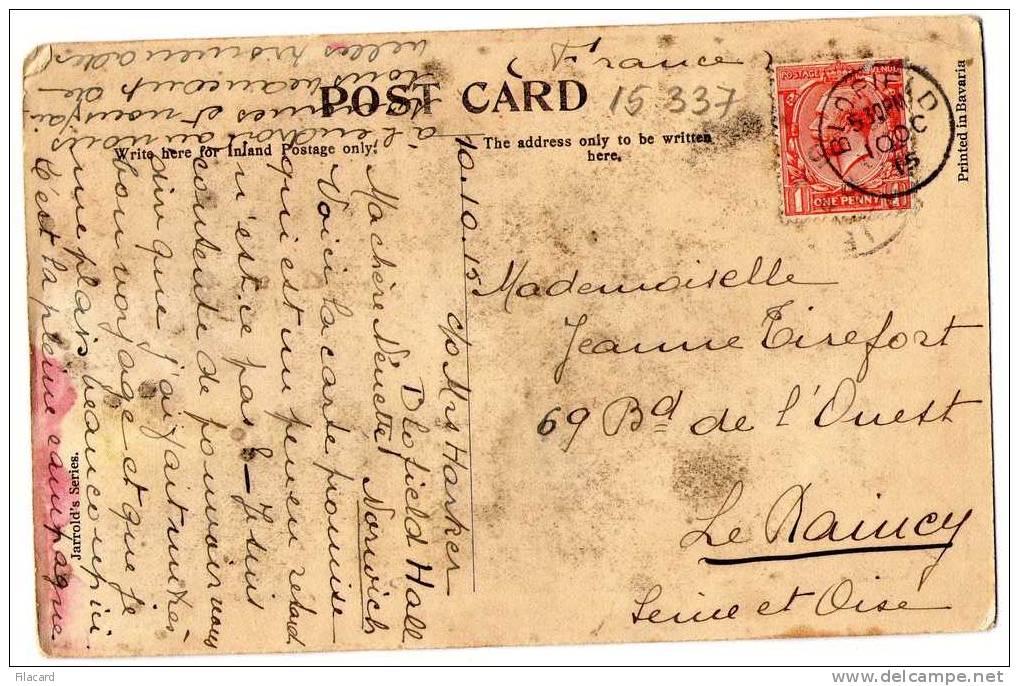 (France)
POST CARD
15 337
Write here for Inland Postage only.
The address only to be written
here.
POSTAGE
REVENUE
1
ONE PENNY
BLOFIELD
5.30PM
10 OC
15
Printed in Bavaria
Jarrold's Series.
Mademoiselle
Jeanne Tirefort
69 Bd de l'Ouest
Le Raincy
Seine et Oise
10.10.15 c/o Mrs Harker
Blofield Hall
Ma chère Nénette Norwich
Voici la carte promise
qui est un peu en retard
n'est-ce pas? – Je suis
contente de pouvoir vous
dire que j'ai fait un très
bon voyage et que je
me plais beaucoup ici.
C'est la pleine campagne
à l'endroit où nous
sommes et nous faisons
tous beaucoup de
belles promenades
Filacard
http://www.delcampe.net